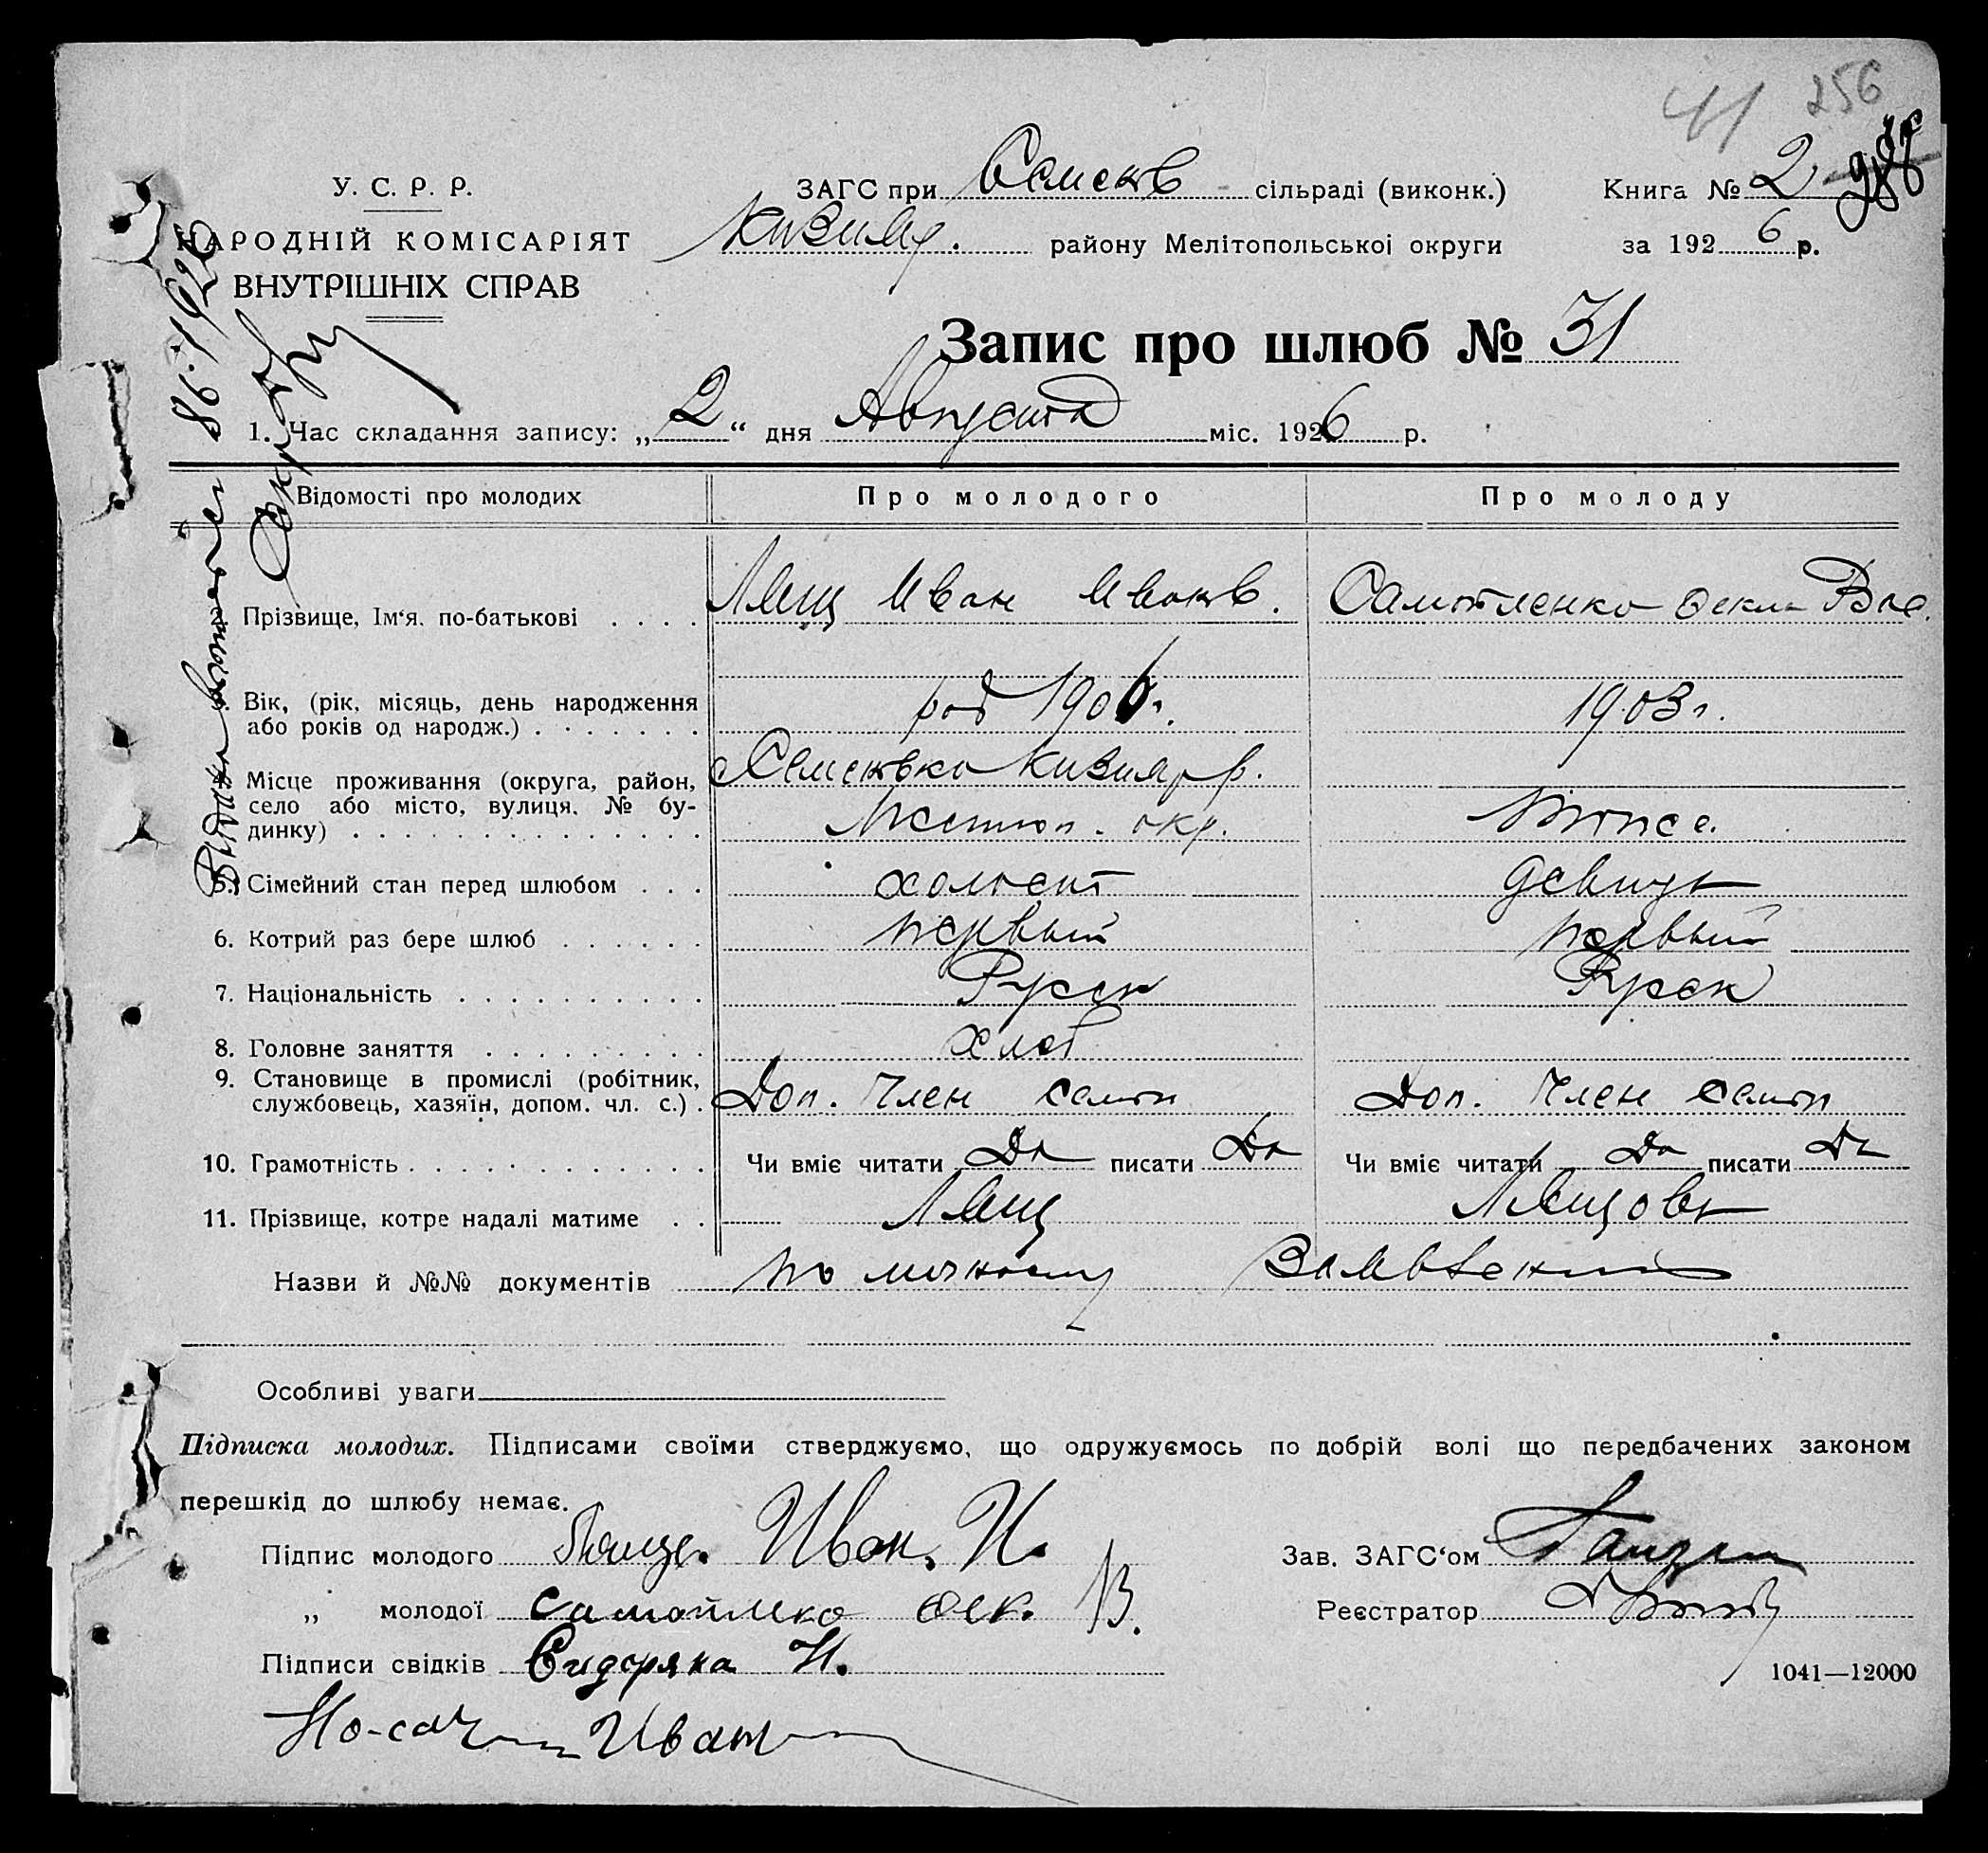 41 256
У. С. Р. Р.
НАРОДНІЙ КОМІСАРІЯТ
ВНУТРІШНІХ СПРАВ
ЗАГС при Семенов сільраді (виконк.) Книга № 2
Кизияр. району Мелітопольської округи за 1926 р.
Запис про шлюб № 31
1. Час складання запису: „2“ дня Августа міс. 1926 р.
Відомості про молодих Про молодого Про молоду
Прізвище, Ім‘я, по-батькові . . . . Лящ Иван Иванов. Самойленко Фекла Вас.
Вік, (рік, місяць, день народження
або років од народж.) . . . . . . . род 1906 г. 1903 г.
Місце проживання (округа, район, с Семеновка Кизияр р.
село або місто, вулиця, № бу-
динку) . . . . . . . . . . . . . . Мелитоп. окр.
5. Сімейний стан перед шлюбом . . . холост девица
6. Котрий раз бере шлюб . . . . . . первый первый
7. Національність . . . . . . . . . . Русск Русск
8. Головне заняття . . . . . . . . . хлеб
9. Становище в промислі (робітник,
службовець, хазяїн, допом. чл. с.) . Доп. член семьи Доп. член семьи
10. Грамотність . . . . . . . . . . . . Чи вміє читати Да писати Да Чи вміє читати Да писати Да
11. Прізвище, котре надалі матиме . . Лящ Лящова
Назви й №№ документів по личному заявлению
Особливі уваги
Підписка молодих. Підписами своїми стверджуємо, що одружуємось по добрій волі що передбачених законом
перешкід до шлюбу немає.
Підпис молодого Иван. И. Зав. ЗАГС‘ом
„ молодої Фек. В. Реєстратор
Підписи свідків Сидоряка И.
1041—12000
Но-сач Иван